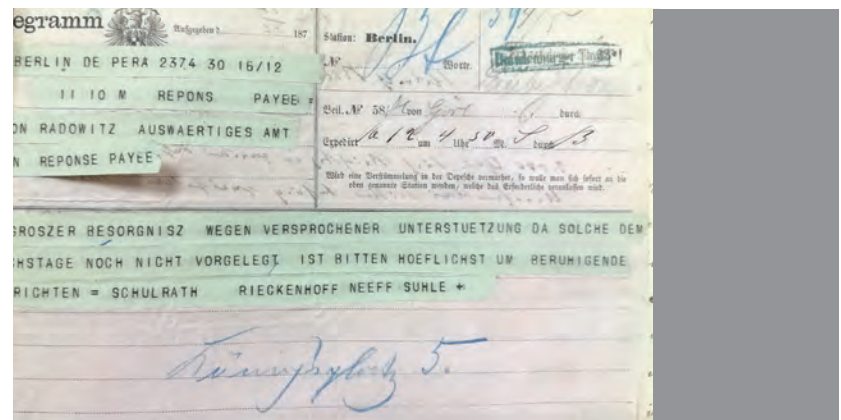 egramm
Aufgegeben d. 187
Station: Berlin.
№ Wortr.
BERLIN DE PERA 2374 30 16/12
11 10 M REPONS PAYEE =
ON RADOWITZ AUSWAERTIGES AMT
N REPONSE PAYEE
Beil. № 58 von durch
Expedirt um 4 Uhr 50 M. durch
Wird eine Verstümmelung in der Depesche vermuthet, so wolle man sich sofort an die
oben genannte Station wenden, welche das Erforderliche veranlassen wird.
GROSZER BESORGNISZ WEGEN VERSPROCHENER UNTERSTUETZUNG DA SOLCHE DEM
HSTAGE NOCH NICHT VORGELEGT IST BITTEN HOEFLICHST UM BERUHIGENDE
RICHTEN = SCHULRATH RIECKENHOFF NEEFF SUHLE +
Königsplatz 5.